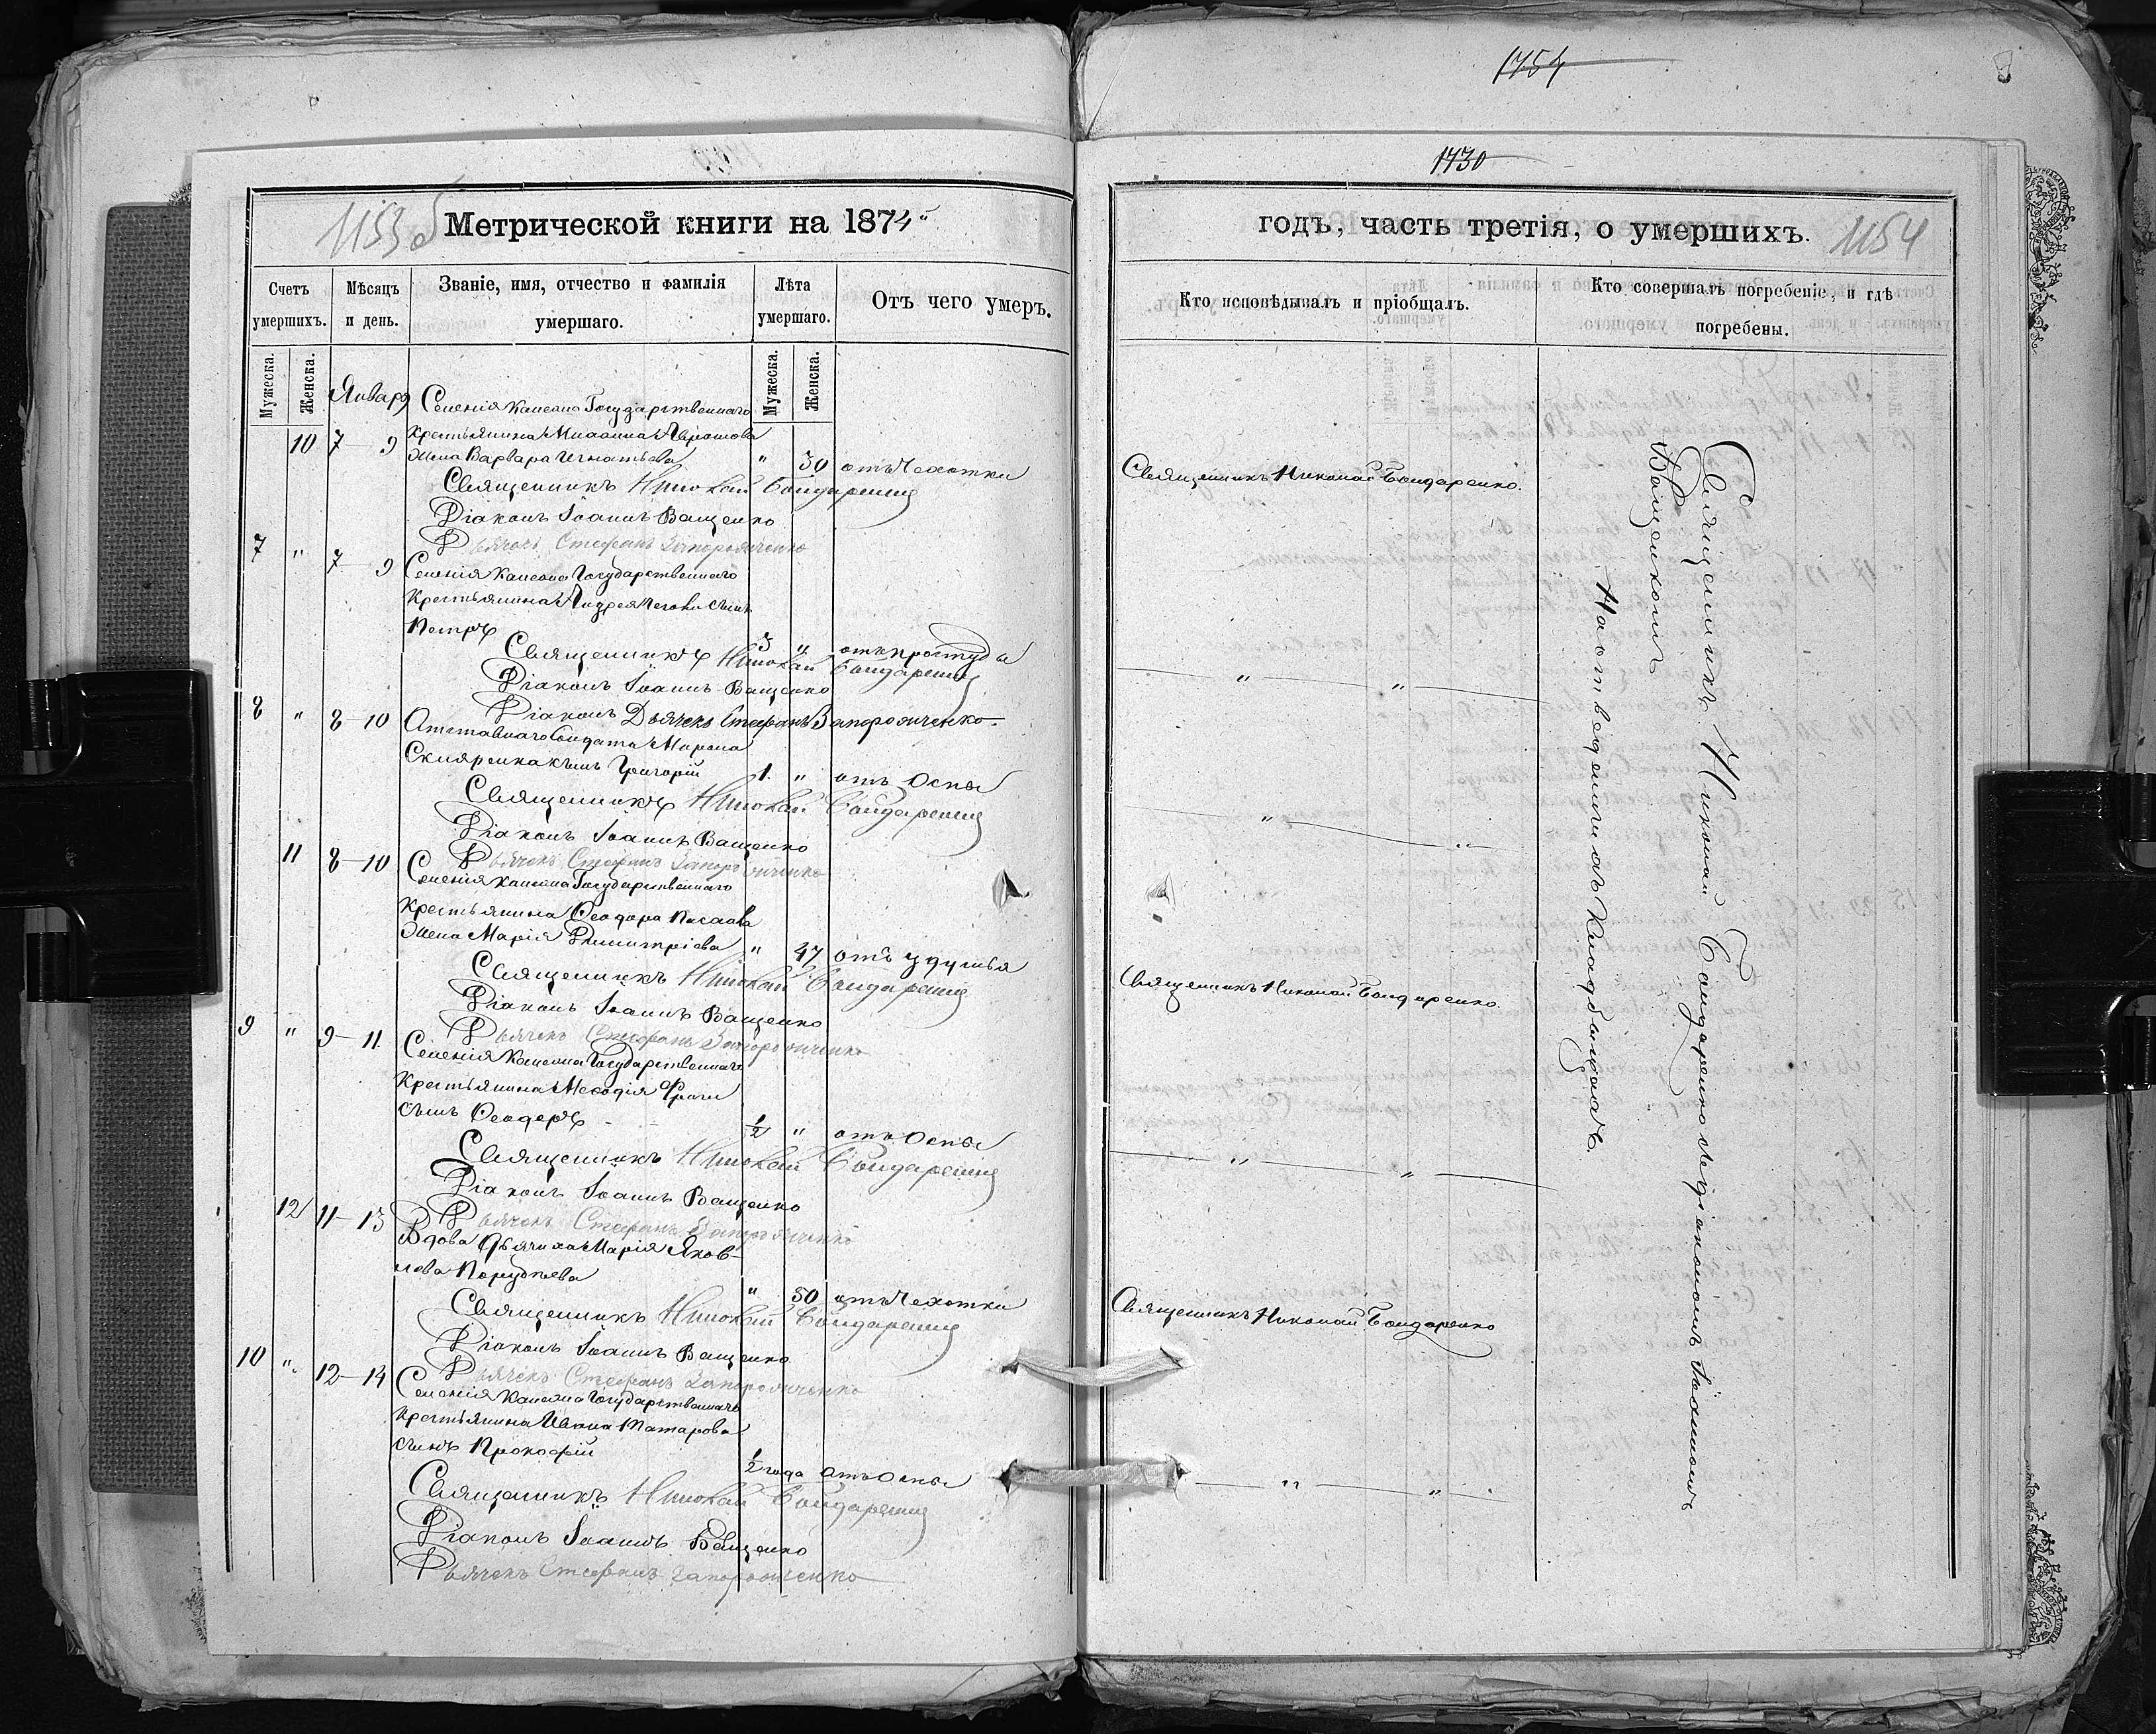 1754
1730
1153об
Метрической книги на 1874
годъ, часть третія, о умершихъ.
1154
Счетъ умершихъ.
Мѣсяцъ и день.
Званіе, имя, отчество и фамилія умершаго.
Лѣта умершаго.
Отъ чего умеръ.
Кто исповѣдывалъ и пріобщалъ.
Кто совершалъ погребеніе, и гдѣ погребены.
Мужеска.
Женска.
Мужеска.
Женска.
Январь
Селенія Каменна Государственнаго
10 7 — 9 Крестьянина Михаила
Жена Варвара Игнатьева " 30 отъ Чахотки
Священникъ Николай Бондаренко
Діаконъ Іоаннъ Ващенко
Дьячекъ Стефанъ Запорожченко
Священникъ Николай Бондаренко.
7 " 7 — 9 Селенія Каменна Государственнаго
Крестьянина Андрея сынъ
Петръ 3 " отъ простуды
Священникъ Николай Бондаренко
Діаконъ Іоаннъ Ващенко
Діаконъ Дьячекъ Стефанъ Запорожченко
" "
8 " 8 — 10 Отставнаго Солдата Марка
Скляренка сынъ Григорій 1. " отъ Оспы
Священникъ Николай Бондаренко
Діаконъ Іоаннъ Ващенко
Дьячекъ Стефанъ Запорожченко
" "
11 8 — 10 Селенія Каменна Государственнаго
Крестьянина Ѳеодора
Жена Марія Димитріева " 47 отъ удушья
Священникъ Николай Бондаренко
Діаконъ Іоаннъ Ващенко
Дьячекъ Стефанъ Запорожченко
Священникъ Николай Бондаренко.
9 " 9 — 11. Селенія Каменна Государственнаго
Крестьянина Меѳодія
сынъ Ѳеодоръ ½ " отъ Оспы
Священникъ Николай Бондаренко
Діаконъ Іоаннъ Ващенко
Дьячекъ Стефанъ Запорожченко
" "
12 11 — 13 Вдова Дьячиха Марія Яков-
лева " 80 отъ Чахотки
Священникъ Николай Бондаренко
Діаконъ Іоаннъ Ващенко
Дьячекъ Стефанъ Запорожченко
Священникъ Николай Бондаренко
10 " 12 — 14 Селенія Каменна Государственнаго
Крестьянина Ивана Татарова
сынъ Прокофій ½ года отъ Оспы
Священникъ Николай Бондаренко
Діаконъ Іоаннъ Ващенко
Дьячекъ Стефанъ Запорожченко
" "
Священникъ Николай Бондаренко съ діакономъ Іоанномъ
Ващенкомъ
На отведенномъ кладбищѣ.